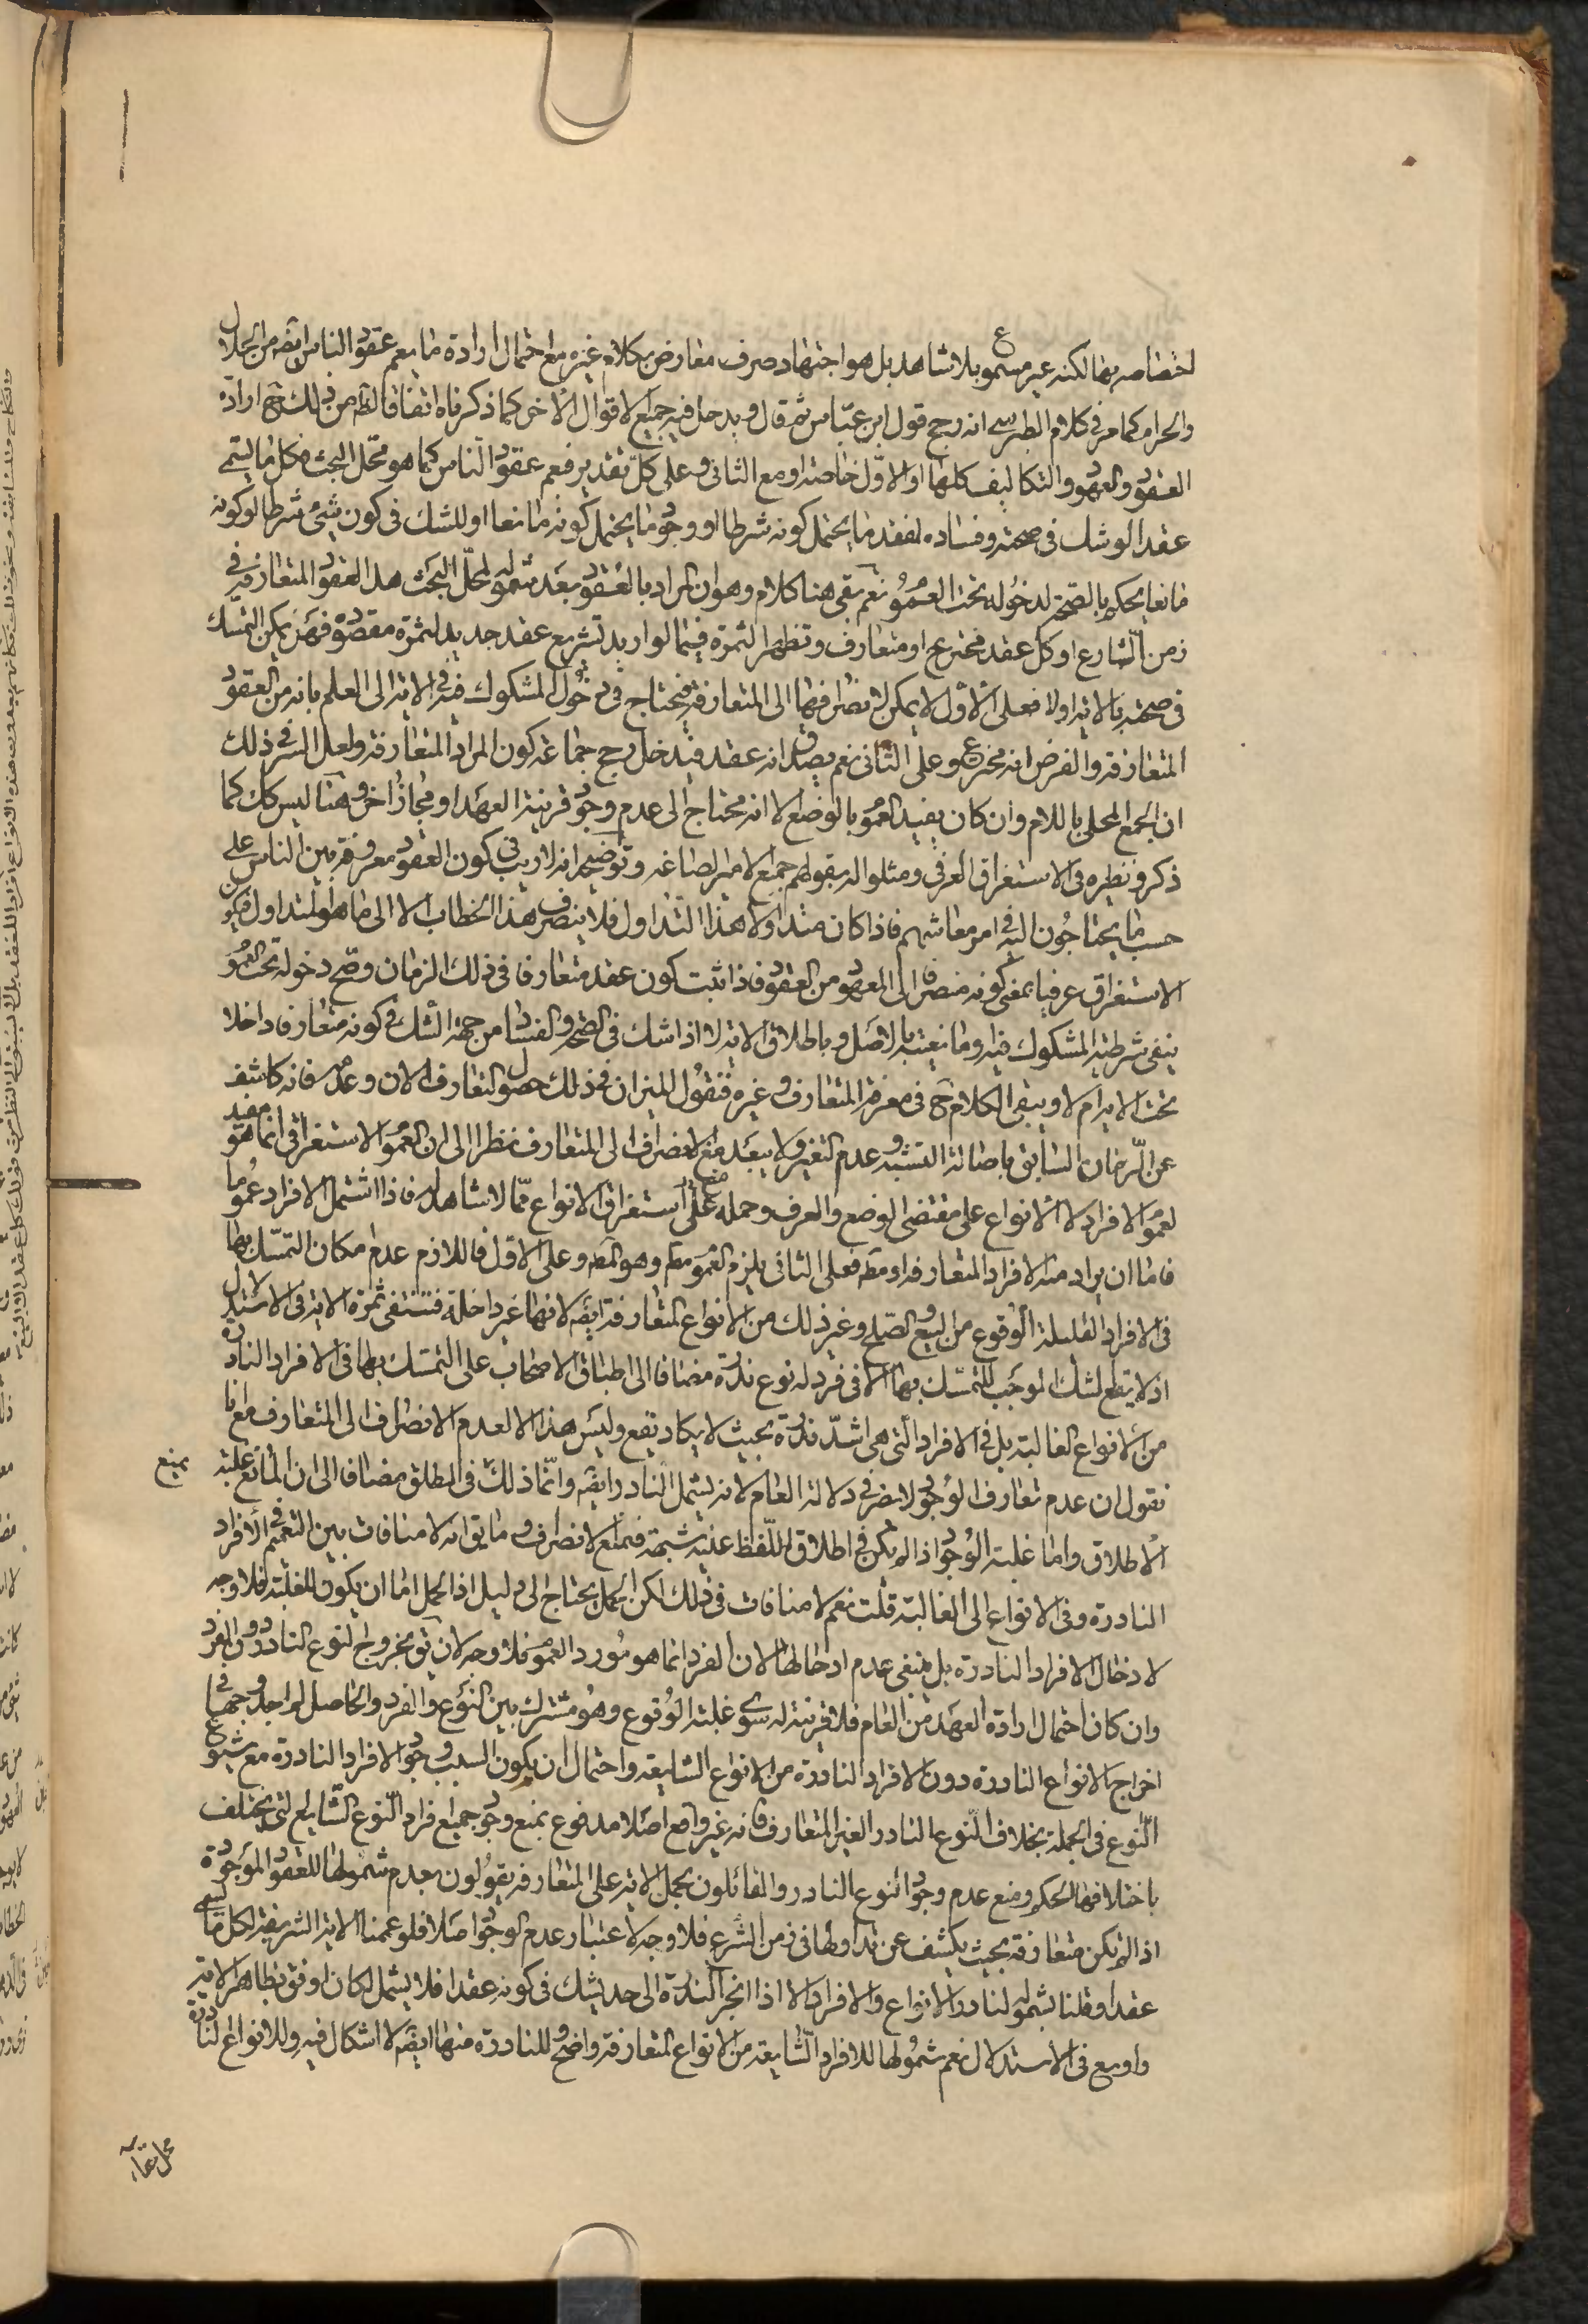 اختصاصه بها لكنه غير مسموع بلا شاهد بل هو اجتهاد صرف معارض بكلام غيره مع احتمال ارادة ما يعم عقود الناس ايضه من الحلال
والحرام كما مر فى كلام الطبرسى انه رجح قول ابن عباس ثم قال ويدخل فيه جميع الاقوال الاخر كما ذكرناه انفا فالظ من ذلك كله ارادة
العقود والعهود والتكاليف كلها او الاول خاصة او مع الثانى وعلى كل تقدير فيعم عقود الناس كما هو محل البحث فكل ما يسمى
عقدا لو شك فى صحته وفساده لفقد ما يحتمل كونه شرطا او وجود ما يحتمل كونه مانعا او للشك فى كون شئ شرطا او كونه
مانعا يحكم بالصحة لدخوله تحت العموم نعم بقى هنا كلام وهو ان المراد بالعقود بعد شموله لمحل البحث هل العقود المتعارفة فى
زمن الشارع او كل عقد مخترع او متعارف وتظهر الثمرة فيما لو اريد تشريع عقد جديد لثمرة مقصودة فهل يمكن التمسك
فى صحته بالاية او لا فعلى الاول لا يمكن لانصرافها الى المتعارفة فيحتاج فى دخول المشكوك فيه فى الاية الى العلم بانه من العقود
المتعارفة والفرض انه مخترع وعلى الثانى نعم يصدق انه عقد فيدخل رجح جماعة كون المراد المتعارفة ولعل السر فى ذلك
ان الجمع المحلى باللام وان كان يفيد العموم بالوضع الا انه محتاج الى عدم وجود قرينة العهد او مجاز اخر وهنا ليس كك كما
ذكر ونظيره فى الاستغراق العرفى ومثلوا له بقولهم جمع الامير الصاغة وتوضيحه انه لا ريب فى كون العقود معروفة بين الناس على
حسب ما يحتاجون اليه فى امر معاشهم فاذا كان متداولا هذا التداول فلا ينصرف هذا الخطاب الا الى ما هو المتداول فيكون
الاستغراق عرفيا بمعنى كونه منصرفا الى المعهود من العقود فاذا ثبت كون عقد متعارفا فى ذلك الزمان وصح دخوله تحت العموم
ينفى شرطية المشكوك فيه ومانعيته بالاصل وباطلاق الاية لا اذا شك فى الصحة والفساد من جهة الشك فى كونه متعارفا داخلا
تحت الاية ام لا ويبقى الكلام ح فى معرفة المتعارف وغيره فنقول الميزان فى ذلك حصول التعارف الان وعدمه فانه كاشف
عن الزمان السابق باصالة التشبه وعدم التغير ولا يبعد منع الانصراف الى المتعارف نظرا الى ان العموم الاستغراقى انما هو مفيد
لعموم الافراد لا الانواع على مقتضى الوضع والعرف وحمله على استغراق الانواع مما لا شاهد له فاذا اشتمل الافراد عموما
فاما ان يراد منه الافراد المتعارفة او مط فعلى الثانى يلزم العموم مط وهو المط وعلى الاول فاللازم عدم امكان التمسك بها
فى الافراد القليلة الوقوع من البيع والصلح وغير ذلك من الانواع المتعارفة ايضه لانها غير داخلة فتنتفى ثمرة الاية فى الاستدلال
اذ لا يقع الشك الموجب للتمسك بها الا فى فرد له نوع ندرة مضافا الى اطباق الاصحاب على التمسك بها فى الافراد النادرة
من الانواع الغالبة بل فى الافراد التى هى اشد ندرة بحيث لا يكاد يقع وليس هذا الا لعدم الانصراف الى المتعارف مع انا
نقول ان عدم تعارف الوجود لا يضر فى دلالة العام لانه يشمل النادر ايضه وانما ذلك فى المطلق مضافا الى ان المانع غلبة يمنع
الاطلاق واما غلبة الوجود اذا لم تكن فى اطلاق اللفظ عليه شبهة فيمنع الانصراف وما يق انه لا منافات بين التعميم فى الافراد
النادرة وفى الانواع الى الغالبة قلت نعم لا منافات فى ذلك لكن الحمل يحتاج الى دليل اذ الحمل اما ان يكون للغلبة فلا وجه
لادخال الافراد النادرة بل ينبغى عدم ادخالها لان الفرد انما هو مورد العموم فلا وجه لان يق بخروج النوع النادر دون الفرد
وان كان احتمال ارادة العهد من العام فلا قرينة له سوى غلبة الوقوع وهو مشترك بين النوع والفرد والحاصل لا اجد وجها فى
اخراج الانواع النادرة دون الافراد النادرة من الانواع الشايعة واحتمال ان يكون السبب وجود الافراد النادرة مع شيوع
النوع فى الجملة بخلاف النوع النادر الغير المتعارف فانه غير واقع اصلا مدفوع بمنع وجود جميع افراد النوع الشايع التى يختلف
باختلافها الحكم ومنع عدم وجود النوع النادر والقائلون بحمل الاية على المتعارفة يقولون بعدم شمولها للعقود الموجودة
اذا لم تكن متعارفة بحيث يكشف عن تداولها فى زمن الشرع فلا وجه لاعتبار عدم الوجود اصلا فلو عممنا الاية الشريفة لكل ما يسمى
عقدا وقلنا بشموله لنادر الانواع والافراد الا اذا انجر الندرة الى حد يشك فى كونه عقدا فلا يشمل لكان اوفق بظاهر الاية
واوسع فى الاستدلال نعم شمولها للافراد الشايعة من الانواع المتعارفة واضح وللنادرة منها ايضه لا اشكال فيه وللانواع النادرة